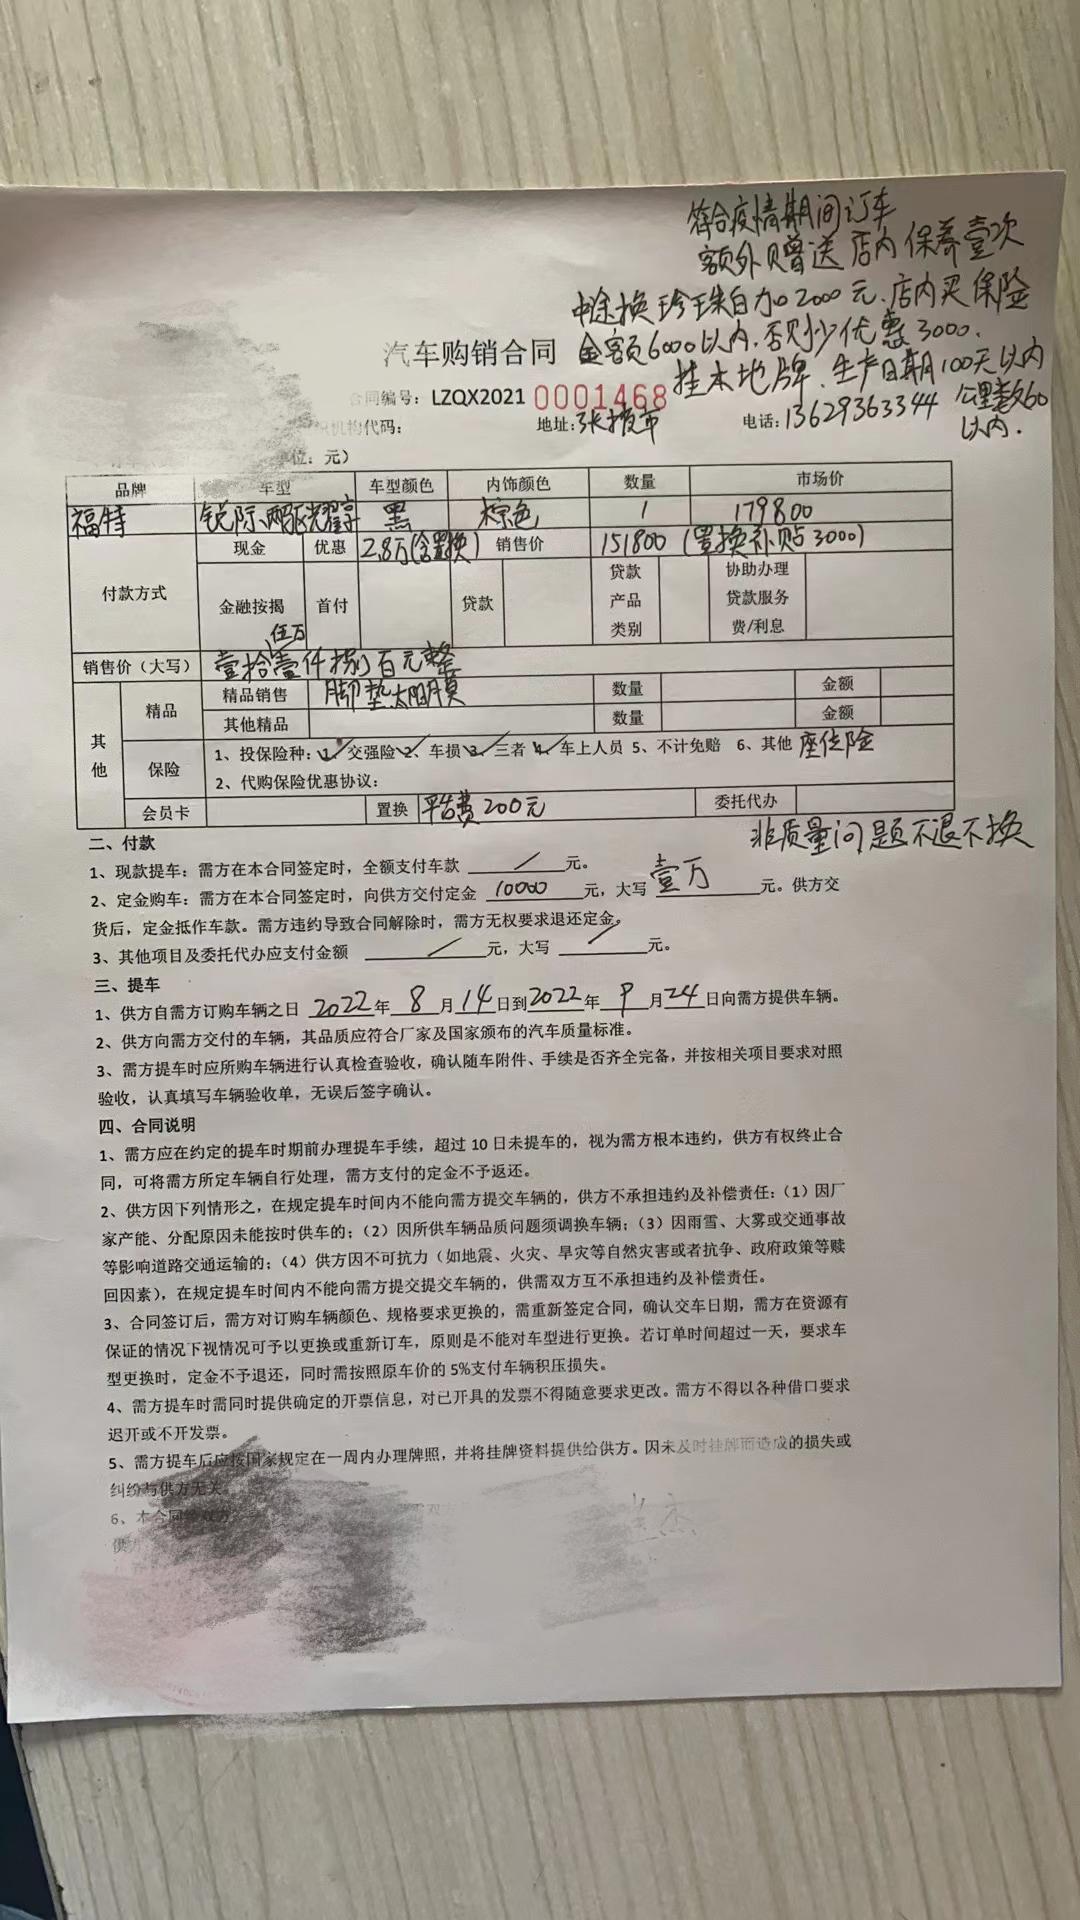 符合疫情期间订车
额外赠送店内保养壹次
中途换珍珠白加2000元、店内买保险
金额6000以内.否则少优惠3000.
挂本地牌、生产日期100天以内
公里数60
以内.
汽车购销合同
合同编号：LZQX2021 0001468
机构代码： 地址: 电话:13629363344
位：元）
品牌 车型 车型颜色 内饰颜色 数量 市场价
福特 锐际、两驱光耀享 黑 棕色 1 179800
付款方式 现金 优惠 2.8万(含置换) 销售价 151800 (置换补贴3000)
金融按揭 首付 贷款 贷款产品类别 协助办理贷款服务费/利息
销售价（大写） 壹拾伍万壹仟捌百元整
其他 精品 精品销售 脚垫太阳膜 数量 金额
其他精品 数量 金额
保险 1、投保险种：1、交强险 2、车损 3、三者 4、车上人员 5、不计免赔 6、其他 座位险
2、代购保险优惠协议：
会员卡 置换 评估费200元 委托代办
非质量问题不退不换
二、付款
1、现款提车：需方在本合同签定时，全额支付车款 / 元。
2、定金购车：需方在本合同签定时，向供方交付定金 10000 元，大写 壹万 元。供方交
货后，定金抵作车款。需方违约导致合同解除时，需方无权要求退还定金。
3、其他项目及委托代办应支付金额 / 元，大写 / 元。
三、提车
1、供方自需方订购车辆之日 2022年 8 月 14 日到2022年 9 月 24 日向需方提供车辆。
2、供方向需方交付的车辆，其品质应符合厂家及国家颁布的汽车质量标准。
3、需方提车时应所购车辆进行认真检查验收，确认随车附件、手续是否齐全完备，并按相关项目要求对照
验收，认真填写车辆验收单，无误后签字确认。
四、合同说明
1、需方应在约定的提车时期前办理提车手续，超过 10 日未提车的，视为需方根本违约，供方有权终止合
同，可将需方所定车辆自行处理，需方支付的定金不予返还。
2、供方因下列情形之，在规定提车时间内不能向需方提交车辆的，供方不承担违约及补偿责任：（1）因厂
家产能、分配原因未能按时供车的；（2）因所供车辆品质问题须调换车辆；（3）因雨雪、大雾或交通事故
等影响道路交通运输的；（4）供方因不可抗力（如地震、火灾、旱灾等自然灾害或者抗争、政府政策等赎
回因素），在规定提车时间内不能向需方提交提交车辆的，供需双方互不承担违约及补偿责任。
3、合同签订后，需方对订购车辆颜色、规格要求更换的，需重新签定合同，确认交车日期，需方在资源有
保证的情况下视情况可予以更换或重新订车，原则是不能对车型进行更换。若订单时间超过一天，要求车
型更换时，定金不予退还，同时需按照原车价的 5%支付车辆积压损失。
4、需方提车时需同时提供确定的开票信息，对已开具的发票不得随意要求更改。需方不得以各种借口要求
迟开或不开发票。
5、需方提车后应按国家规定在一周内办理牌照，并将挂牌资料提供给供方。因未及时挂牌而造成的损失或
纠纷与供方无关。
6、本合同